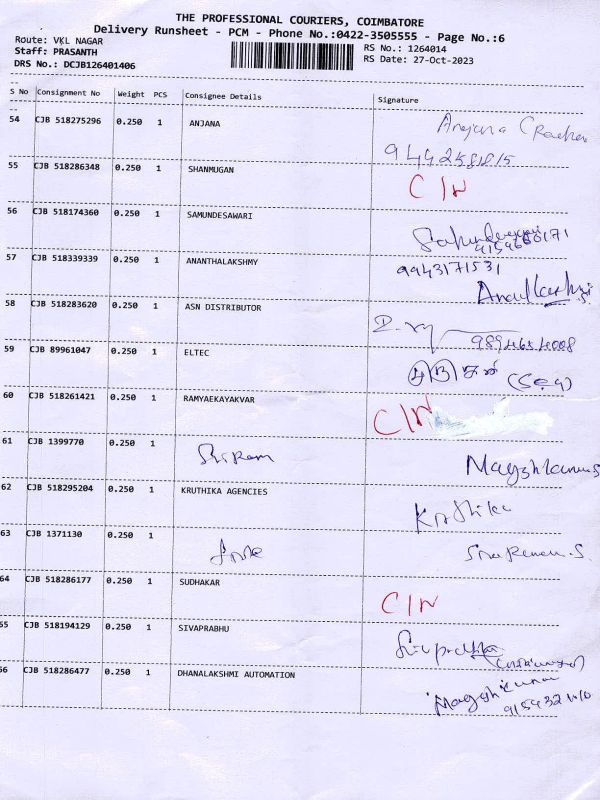 THE PROFESSIONAL COURIERS, COIMBATORE
Delivery Runsheet - PCM - Phone No.:0422-3505555 - Page No.:6
Route: VKL NAGAR
RS No.: 1264014
Staff: PRASANTH
RS Date: 27-Oct-2023
DRS No.: DCJB126401406
S No Consignment No Weight PCS Consignee Details Signature
54 CJB 518275296 0.250 1 ANJANA Anjana
55 CJB 518286348 0.250 1 SHANMUGAN C/N
56 CJB 518174360 0.250 1 SAMUNDESAWARI
57 CJB 518339339 0.250 1 ANANTHALAKSHMY 9943171531
58 CJB 518283620 0.250 1 ASN DISTRIBUTOR
59 CJB 89961047 0.250 1 ELTEC
60 CJB 518261421 0.250 1 RAMYAEKAYAKVAR C/N
61 CJB 1399770 0.250 1
62 CJB 518295204 0.250 1 KRUTHIKA AGENCIES
63 CJB 1371130 0.250 1
64 CJB 518286177 0.250 1 SUDHAKAR C/N
65 CJB 518194129 0.250 1 SIVAPRABHU
66 CJB 518286477 0.250 1 DHANALAKSHMI AUTOMATION